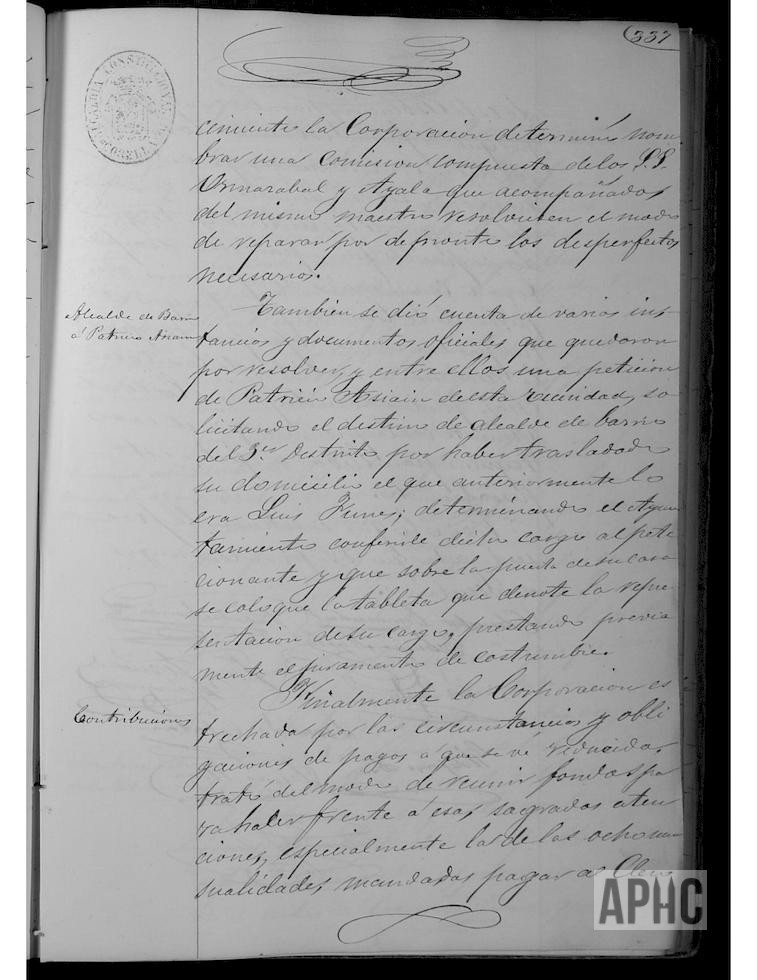 337
ALCALDIA CONSTITUCIONAL
CORELLA
cimiento la Corporacion determinó nom
brar una comision compuesta de los S.S.
Ormazabal y Ayala que acompañados
del mismo maestro resolviesen el modo
de reparar por de pronto los desperfectos
necesarios.
Alcalde de Barrio
á Patricio Asiain
Tambien se dió cuenta de varias ins-
tancias y documentos oficiales que quedaron
por resolver, y entre ellos una peticion
de Patricio Asiain de esta vecindad, so
licitando el destino de alcalde de barrio
del 3.er Destrito por haber trasladado
su domicilio el que anteriormente lo
era Luis Funes; determinando el Ayun
tamiento conferirle dicho cargo al peti
cionante y que sobre la puerta de su casa
se coloque la tableta que denote la repre
sentacion de su cargo, prestando previa
mente el juramento de costumbre.
Contribuciones
Finalmente la Corporacion es
trechada por las circunstancias y obli
gaciones de pagos á que se vé reducida,
trató del modo de reunir fondos pa
ra haber frente á esas sagradas aten
ciones, especialmente la de las ocho men
sualidades mandadas pagar al Clero
APHC